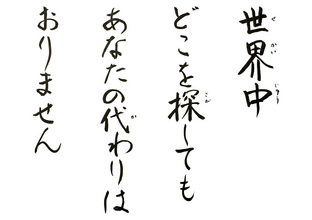 世界中
どこを探しても
あなたの代わりは
おりません